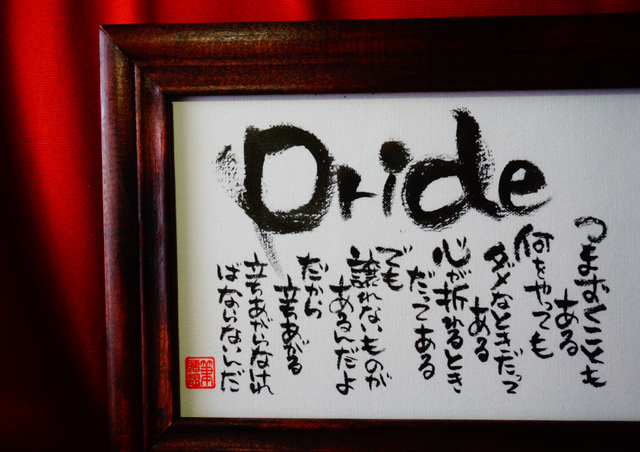 Pride
つまずくことも
ある
何をやっても
ダメなときだって
ある
心が折れるとき
だってある
でも
譲れないものが
あるんだよ
だから
立ちあがる
立ちあがらなければ
ばならないんだ